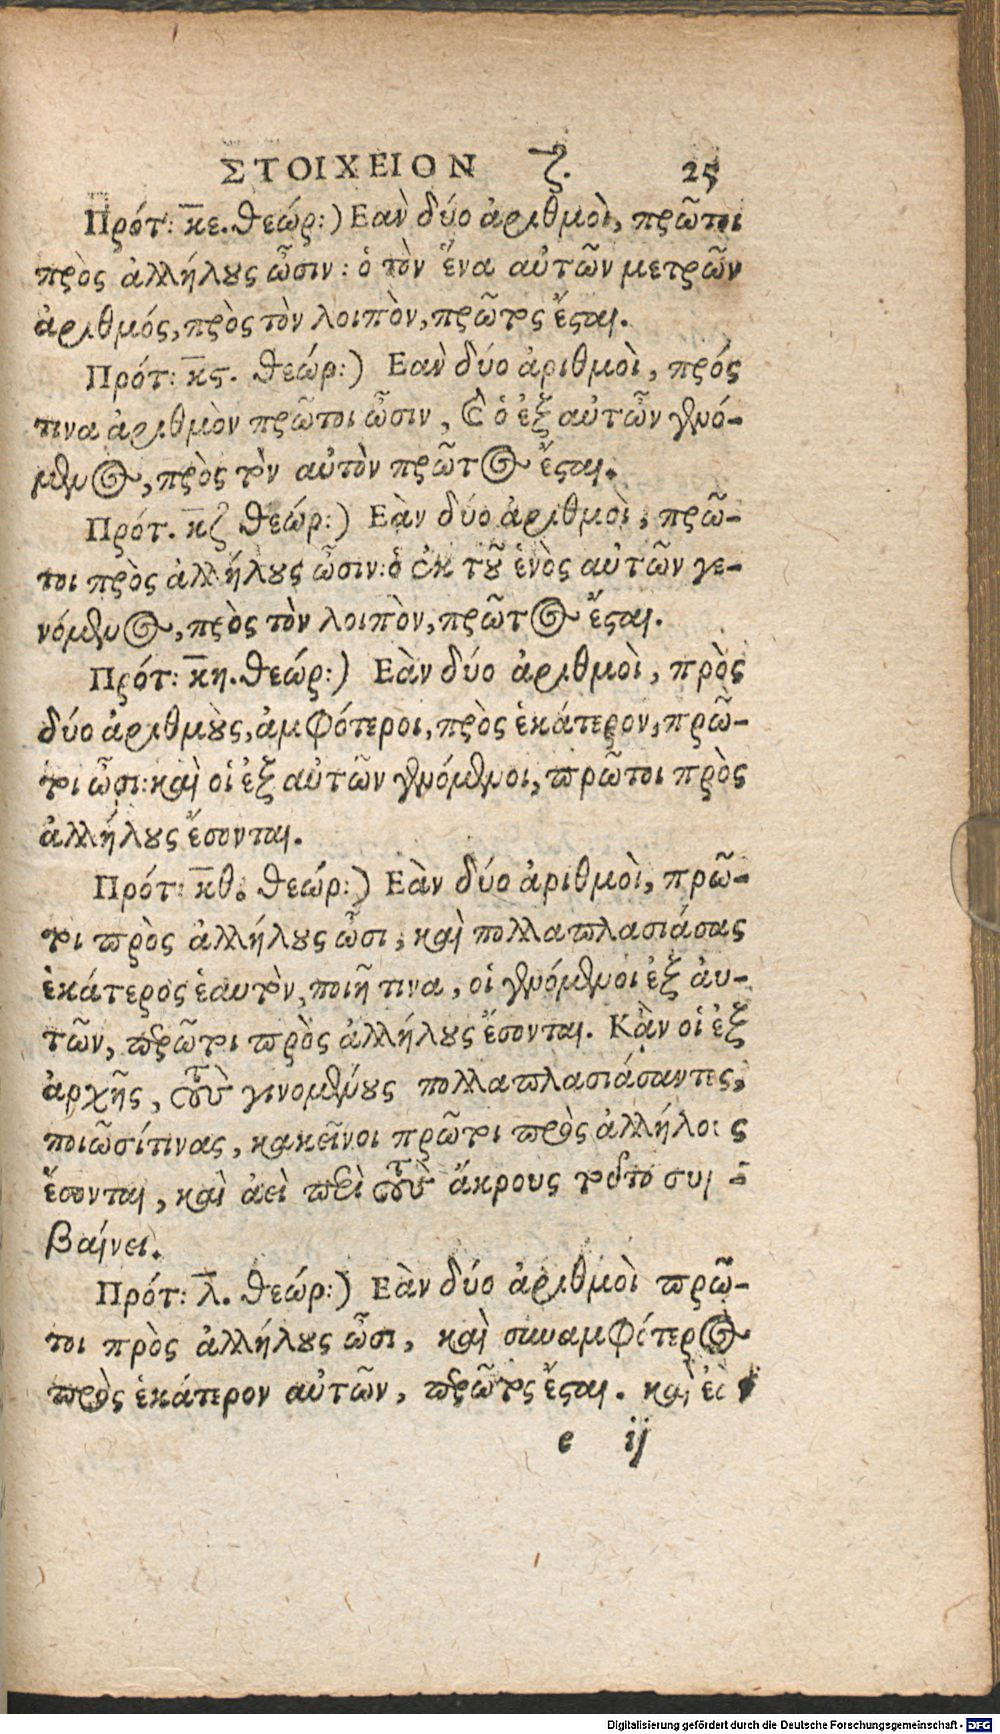 ΣΤΟΙΧΕΙΟΝ ζ. 25
Πρότ: κ̅ε. θεώρ:) Εαν δύο ἀριθμοὶ, πρῶτοι
πρὸς ἀλλήλους ὦσιν: ὁ τὸν ἕνα αὐτῶν μετρῶν
ἀριθμός, πρὸς τὸν λοιπὸν, πρῶτος ἔσται.
Πρότ: κ̅ϛ. θεώρ:) Εαν δύο ἀριθμοὶ, πρός
τινα ἀριθμὸν πρῶτοι ὦσιν, καὶ ὁ ἐξ αὐτῶν γενό-
μενος, πρὸς τὸν αὐτὸν πρῶτος ἔσται.
Πρότ. κ̅ζ θεώρ:) Εὰν δύο ἀριθμοὶ, πρῶ-
τοι πρὸς ἀλλήλους ὦσιν: ὁ ἐκ τοῦ ἑνὸς αὐτῶν γε-
νόμενος, πρὸς τὸν λοιπὸν, πρῶτος ἔσται.
Πρότ: κ̅η. θεώρ:) Εὰν δύο ἀριθμοὶ, πρὸς
δύο ἀριθμοὺς, ἀμφότεροι, πρὸς ἑκάτερον, πρῶ-
τοι ὦσι: καὶ οἱ ἐξ αὐτῶν γενόμενοι, πρῶτοι πρὸς
ἀλλήλους ἔσονται.
Πρότ: κ̅θ. θεώρ:) Εὰν δύο ἀριθμοὶ, πρῶ-
τοι πρὸς ἀλλήλους ὦσι, καὶ πολλαπλασιάσας
ἑκάτερος ἑαυτὸν, ποιῇ τινα, οἱ γενόμενοι ἐξ ἀυ-
τῶν, πρῶτοι πρὸς ἀλλήλους ἔσονται. Κᾂν οἱ ἐξ
ἀρχῆς, τοὺς γινομένους πολλαπλασιάσαντες,
ποιῶσί τινας, κακεῖνοι πρῶτοι πρὸς ἀλλήλους
ἔσονται, καὶ ἀεὶ περὶ τοὺς ἄκρους τοῦτο συμ-
βαίνει.
Πρότ: λ̅. θεώρ:) Εὰν δύο ἀριθμοὶ πρῶ-
τοι πρὸς ἀλλήλους ὦσι, καὶ συναμφότερος
πρὸς ἑκάτερον αὐτῶν, πρῶτος ἔσται. καὶ
e ij
Digitalisierung gefördert durch die Deutsche Forschungsgemeinschaft - DFG